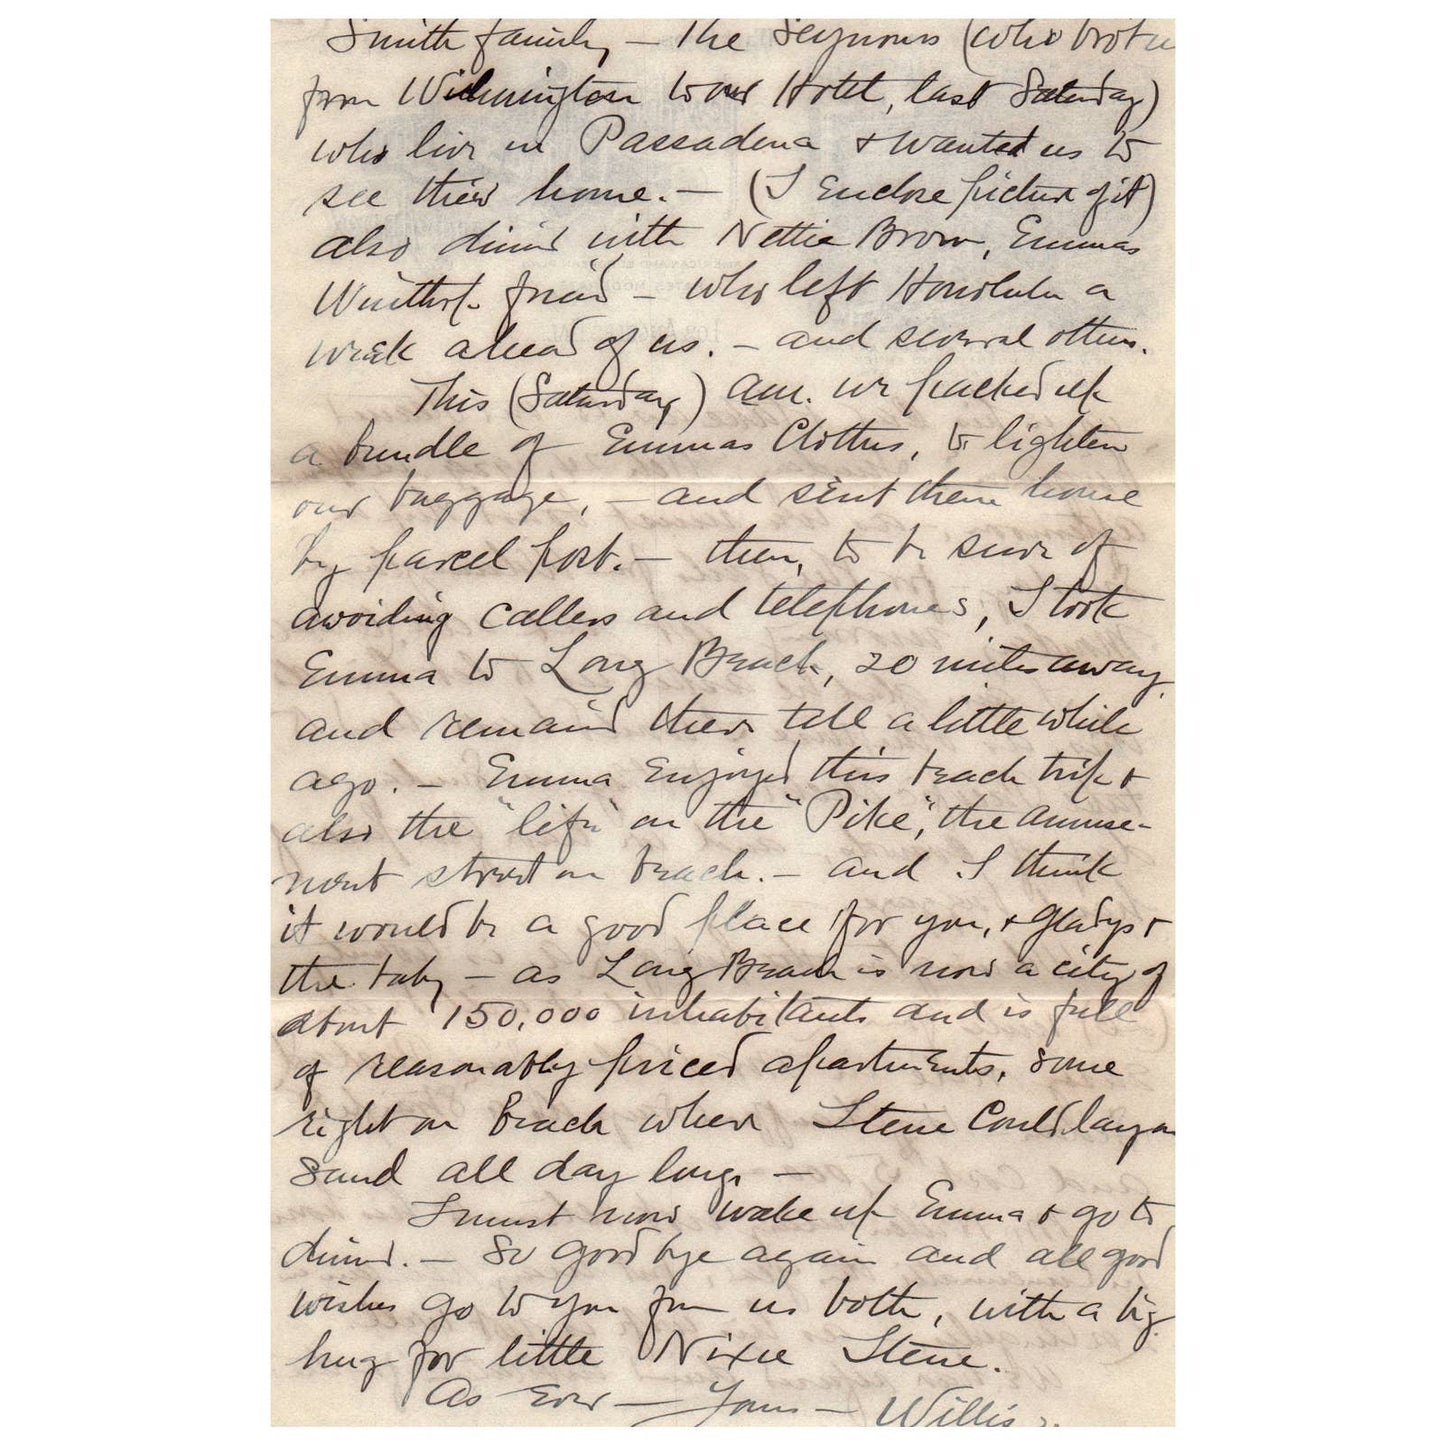 Smith family — The Seymours (who brot us
from Wilmington to our Hotel, last Saturday)
who live in Passadena + wanted us to
see their home. — (I Enclose picture of it)
also dinner with Nettie Brown, Emmas
Winthrop friend — who left Honolulu a
week ahead of us. — and several others.
This (Saturday) am. we packed up
a bundle of Emmas Clothes, to lighten
our baggage, — and sent them home
by parcel post. — then, to be sure of
avoiding callers and telephones, I took
Emma to Long Beach, 20 miles away,
and remained there till a little while
ago. — Emma Enjoyed this beach trip +
also the "life" on the "Pike", the amuse-
ment street on beach. — and I think
it would be a good place for you, + Gladys +
the baby — as Long Beach is now a city of
about 150,000 inhabitants and is full
of reasonably priced apartments, some
right on Beach where Stene Could lay on
sand all day long. —
I must now wake up Emma + go to
dinner. — So Good bye again and all good
wishes go to you from us both, with a big
hug for little Nixie Stene.
As Ever — Yours — Willis